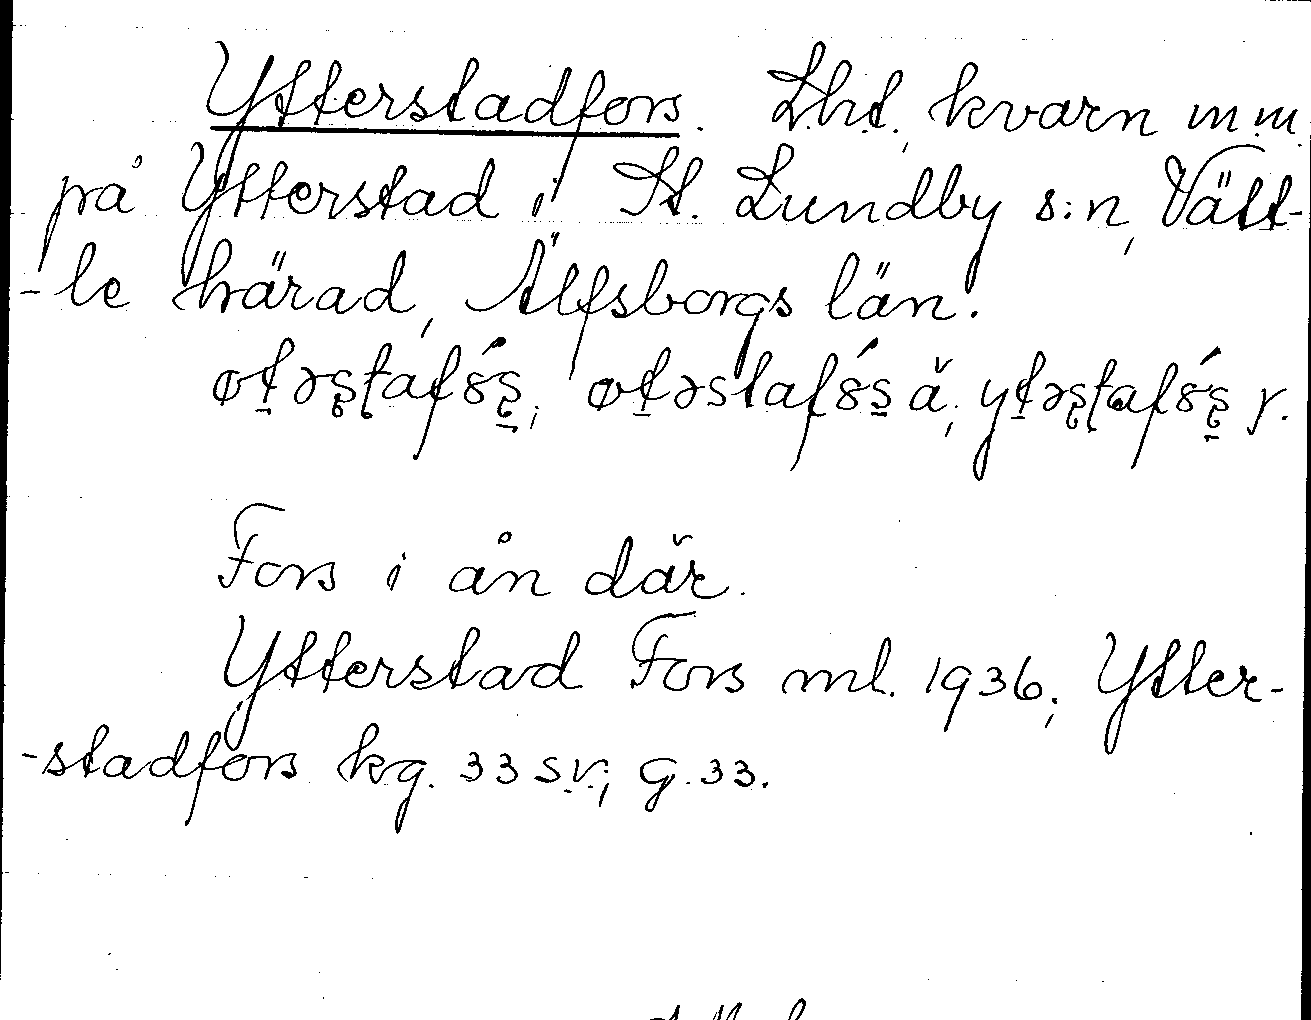 Ytterstadfors. Lht, kvarn m.m.
på Ytterstad i St. Lundby s:n, Vätt-
-le härad, Älfsborgs län.
Fors i ån där.
Ytterstad Fors ml. 1936; Ytter-
-stadfors kg. 33 sv; g. 33.